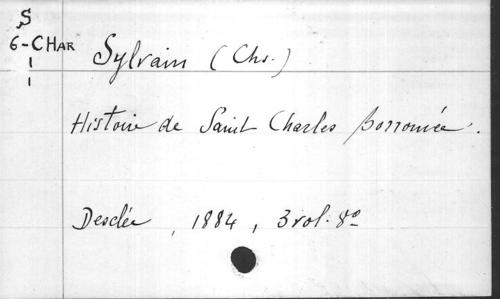 S
6-CHAR
Sylvain (Chs.)
Histoire de Saint Charles Borromée.
Desclée, 1884, 3 vol. 8º